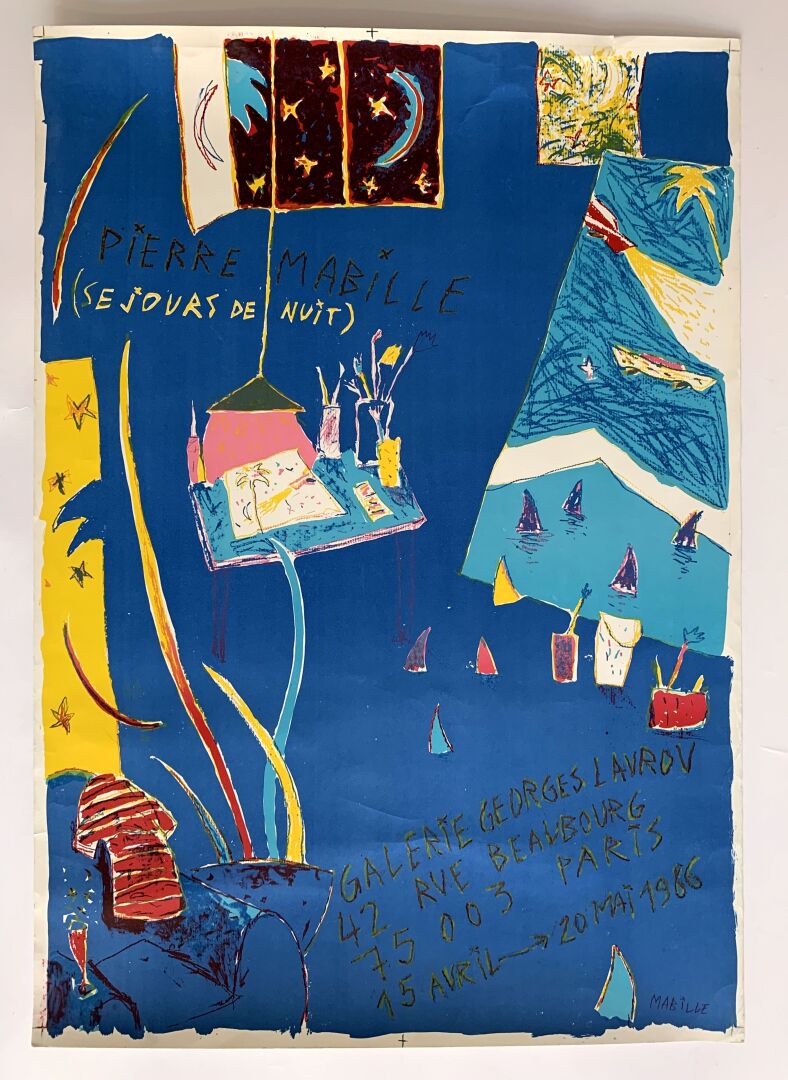 PIERRE MABILLE
(SEJOURS DE NUIT)
GALERIE GEORGES LAVROV
42 RUE BEAUBOURG
75003 PARIS
15 AVRIL → 20 MAI 1986
MABILLE